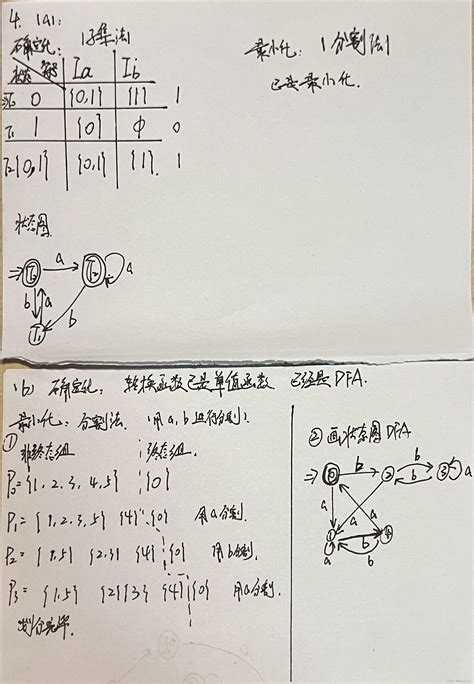 4. (a):
确定化: (子集法)
状态 Ia Ib
T0 0 {0,1} {1} 1
T1 1 {0} φ 0
T2 {0,1} {0,1} {1} 1
最小化: (分割法)
已是最小化.
状态图
T0 a T2 a
b a b
T1
(b) 确定化: 转换函数已是单值函数 已经是DFA.
最小化: 分割法. (用a,b进行分割).
① 非终态组 终态组.
P0={1,2,3,4,5} {0}
P1={1,2,3,5} {4} {0} 用a分割.
P2={1,5} {2,3} {4} {0} 用b分割.
P3={1,5} {2}{3} {4} {0} 用a分割.
划分完毕.
② 画状态图DFA
0 b 2 b 3 a
b
a a a
1 b 4
a b